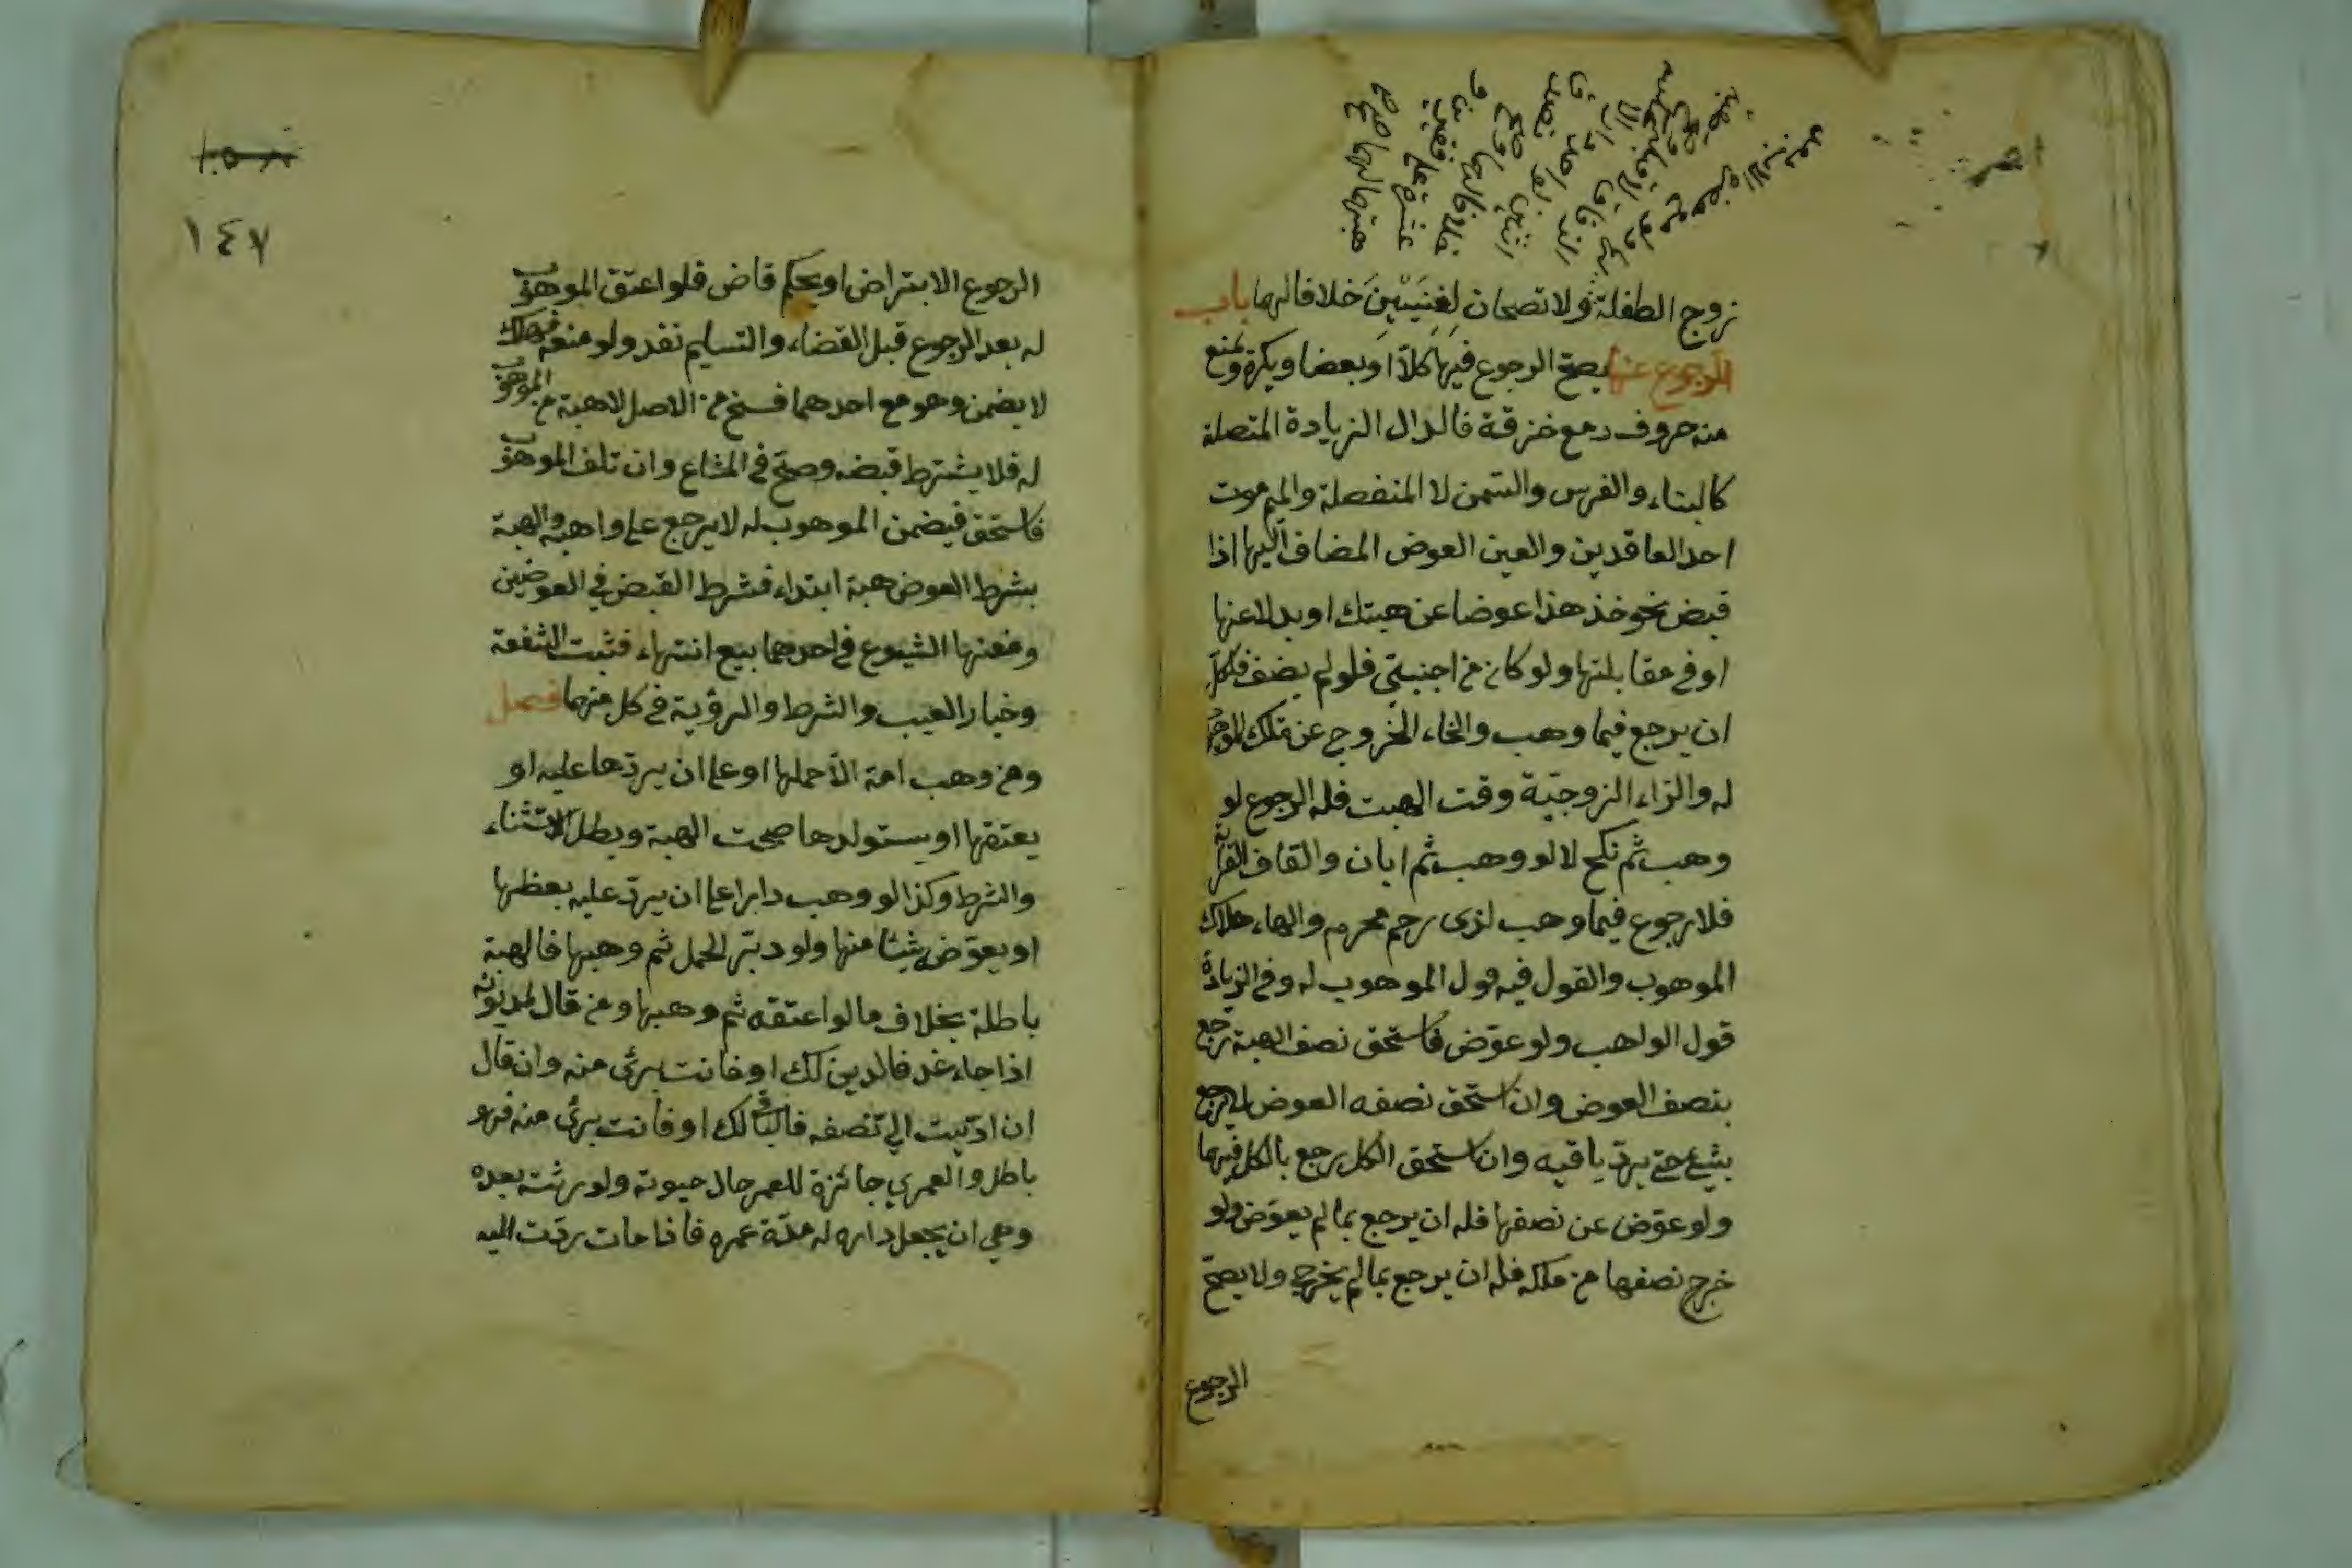 زوج الطفلة ولا تصحان لغنيين خلافا لهما باب
الرجوع عنها يصح الرجوع فيها كلا او بعضا ويكره ويمنع
منه حروف دمع خزقة فالدال الزيادة المتصلة
كالبناء والغرس والسمن لا المنفصلة والميم موت
احد العاقدين والعين العوض المضاف اليها اذا
قبض نحو خذ هذا عوضا عن هبتك او بدلا عنها
او في مقابلتها ولو كان من اجنبي فلو لم يضف فلكل
ان يرجع فيما وهب والخاء الخروج عن ملك الموهوب
له والزاء الزوجية وقت الهبت فله الرجوع لو
وهب ثم نكح لا لو وهب ثم ابان والقاف القرابة
فلا رجوع فيما وهب لذى رحم محرم والهاء هلاك
الموهوب والقول فيه قول الموهوب له وفي الزيادة
قول الواهب ولو عوض فاستحق نصف الهبة رجع
بنصف العوض وان استحق نصفه العوض لا يرجع
بشئ حتى يرد باقيه وان استحق الكل رجع بالكل فيهما
ولو عوض عن نصفها فله ان يرجع بما لم يعوض ولو
خرج نصفها من ملكه فله ان يرجع بما لم يخرج ولا يصح
الرجوع
١٤٧
الرجوع الا بتراض او بحكم قاض فلو اعتق الموهوب
له بعد الرجوع قبل القضاء والتسليم نفد ولو منعه فهلك
لا يضمن وهو مع احدهما فسخ من الاصل لا هبة من الموهوب
له فلا يشترط قبضه وصح في المشاع وان تلف الموهوب
فاستحق فيضمن الموهوب له لا يرجع على واهبه والهبة
بشرط العوض هبة ابتداء فشرط القبض في العوضين
ومنعها الشيوع في احدهما بيع انتهاء فثبت الشفعة
وخيار العيب والشرط والرؤية في كل منهما فصل
ومن وهب امة الا حملها او على ان يردها عليه او
يعتقها او يستولدها صحت الهبة وبطل الاستثناء
والشرط وكذا لو وهب دارا على ان يرد عليه بعظها
او يعوض شيئا منها ولو دبر الحمل ثم وهبها فالهبة
باطلة بخلاف ما لو اعتقه ثم وهبها ومن قال لمديونه
اذا جاء غد فالدين لك او فانت برئ منه وان قال
ان اديت الي نصفه فالباقي لك او فانت برئ منه فهو
باطل والعمري جائزة للمعمر حال حيوته ولورثته بعده
وهي ان يجعل داره له مدة عمره فاذا مات ردت اليه